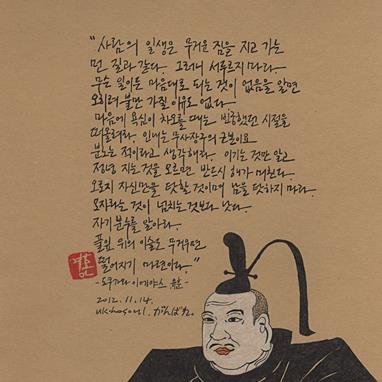 "사람의 일생은 무거운 짐을 지고 가는
먼 길과 같다. 그러니 서두르지 마라.
무슨 일이든 마음대로 되는 것이 없음을 알면
오히려 불만 가질 이유도 없다.
마음에 욕심이 차오를 때는 빈궁했던 시절을
떠올려라. 인내는 무사장구의 근본이요
분노는 적이라고 생각해라. 이기는 것만 알고
정녕 지는 것을 모르면 반드시 해가 미친다.
오로지 자신만을 탓할 것이며 남을 탓하지 마라.
모자라는 것이 넘치는 것보다 낫다.
자기 분수를 알아라.
풀잎 위의 이슬도 무거우면
떨어지기 마련이다."
-도쿠가와 이에야스 유훈-
2012.11.14.